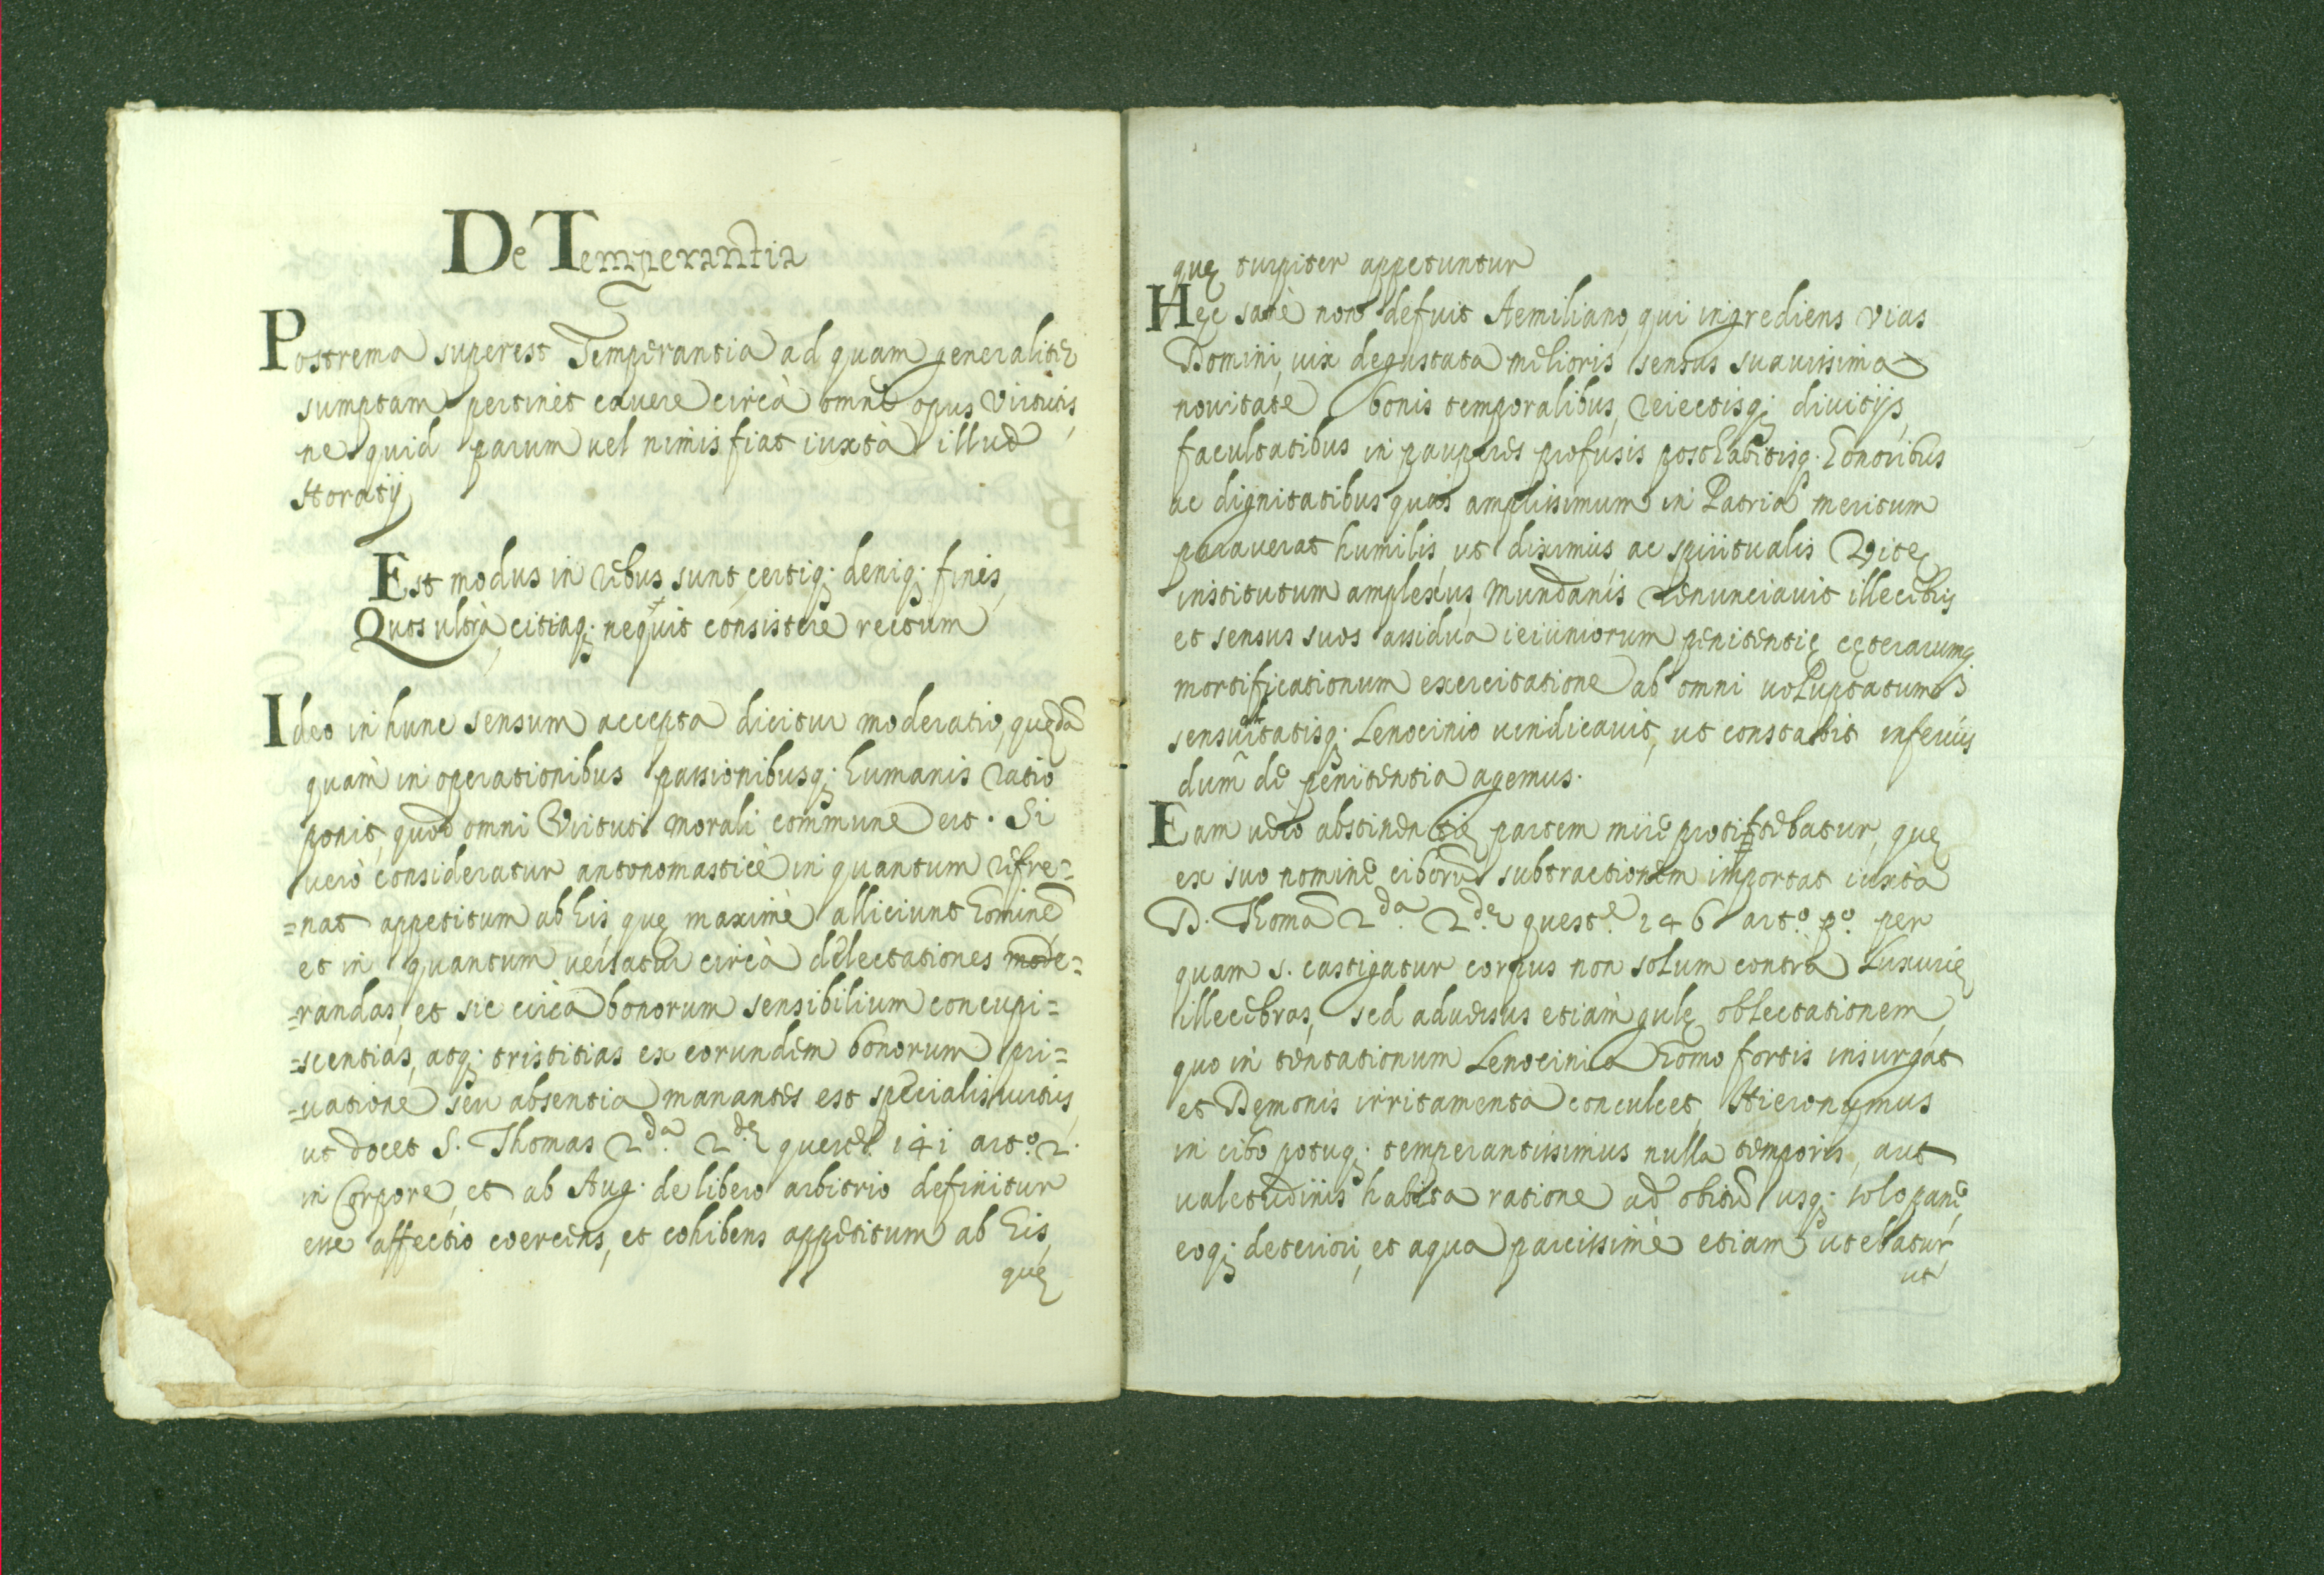 De Temperantia
Postrema superest Temperantia ad quam generaliter
sumptam pertinet cavere circà omne opus Virtutis,
ne quid parum vel nimis fiat iuxtà illud
Horatij
Est modus in rebus, sunt certiq; deniq; fines,
Quos ultrà, citraq; nequit consistere rectum
Ideo in hunc sensum accepta dicitur moderatio, quędā
quam in operationibus passionibusq; humanis ratio
ponit, quod omni Virtuti morali commune est. Si
verò consideratur antonomasticè in quantum refre=
=nat appetitum ab his, quę maximè alliciunt hominē
et in quantum versatur circà delectationes mode=
=randas, et sic circa bonorum sensibilium concupi=
=scentias, atq; tristitias ex eorundem bonorum pri=
=vatione seu absentia manantes est specialis virtus,
ut docet S. Thomas 2.da 2.dę quest.e 141 art.o 2.
in Corpore, et ab Aug. de libero arbitrio definitur
esse affectio coercens, et cohibens appetitum ab his,
quę
quę turpiter appetuntur
Hęc sanè non defuit Aemiliano, qui ingrediens vias
Domini, vix degustata melioris sensus suavissima
novitate bonis temporalibus, reiectisq; divitijs,
facultatibus in pauperes profusis posthabitisq. honoribus
ac dignitatibus quas amplissimum in Patria meritum
paraverat humilis, ut diximus, ac spiritualis Vitę
institutum amplexus, Mundanis renunciavit illecebris
et sensus suos assidua ieiuniorum penitentię cęterarumq.
mortificationum exercitatione ab omni voluptatum
sensuitatisq; Lenocinio vindicavit, ut constabit inferius
dum de penitentia agemus.
Eam verò abstinentię partem mirè profitebatur, quę
ex suo nomine ciborū subtractionem importat iuxtà
D. Thomā 2.da 2.dę quest.e 146 art.o p.o per
quam s. castigatur corpus non solum contrà Luxurię
illecebras, sed adversus etiàm gulę oblectationem,
quo in tentationum Lenocinia homo fortis insurgat
et Dęmonis irritamenta conculcet, Hieronymus
in cibo potuq; temperantissimus nulla temporis, aut
valetudinis habita ratione ad obitū usq; solo pane,
eoq; deteriori, et aqua parcissimè etiam utebatur,
ut